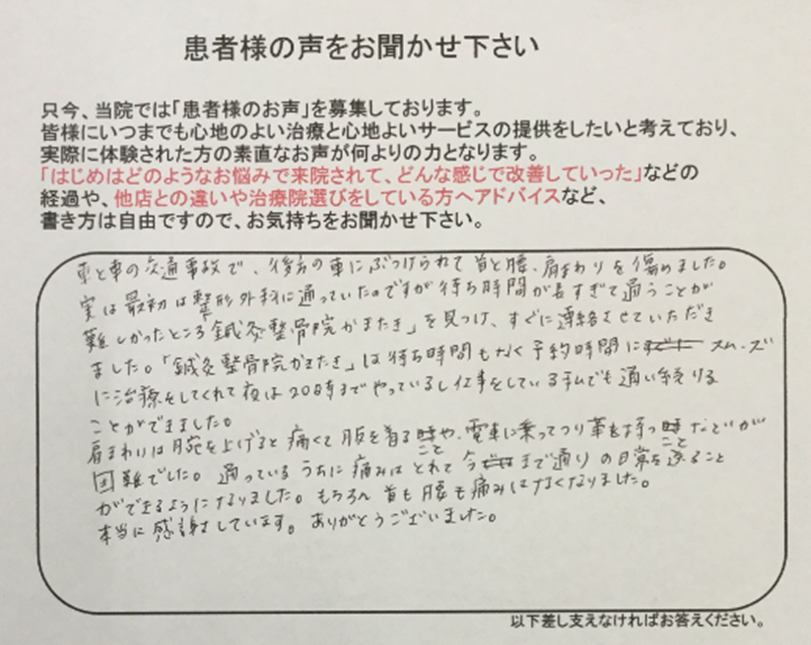 患者様の声をお聞かせ下さい
只今、当院では「患者様のお声」を募集しております。
皆様にいつまでも心地のよい治療と心地よいサービスの提供をしたいと考えており、
実際に体験された方の素直なお声が何よりの力となります。
「はじめはどのようなお悩みで来院されて、どんな感じで改善していった」などの
経過や、他店との違いや治療院選びをしている方へアドバイスなど、
書き方は自由ですので、お気持ちをお聞かせ下さい。
車と車の交通事故で、後方の車にぶつけられて首と腰、肩まわりを傷めました。
実は最初は整形外科に通っていたのですが待ち時間が長すぎて通うことが
難しかったところ鍼灸整骨院かまたき」を見つけ、すぐに連絡させていただき
ました。「鍼灸整骨院かまたき」は待ち時間もなく予約時間に スムーズ
に治療をしてくれて夜は20時までやっているし仕事をしている私でも通い続ける
ことができました。
肩まわりは腕を上げると痛くて服を着ることや、電車に乗ってつり革を持つことなどが
困難でした。通っているうちに痛みはとれて今まで通りの日常を送ること
ができるようになりました。もちろん首も腰も痛みはなくなりました。
本当に感謝しています。ありがとうございました。
以下差し支えなければお答えください。